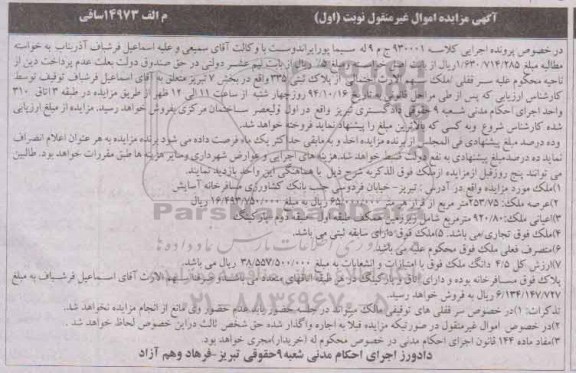 آگهی مزایده اموال غیرمنقول نوبت (اول)
م الف ۱۴۹۷۳ساقی
درخصوص پرونده اجرایی کلاسه ۹۳۰۰۰۱ ج م ۹ له سیما پورایراندوست با وکالت آقای سمیعی و علیه اسماعیل فرشباف آذربناب به خواسته
مطالبه مبلغ ۱/۶۳۰/۷۱۴/۲۸۵ریال از بابت اصل خواسته و مبلغ ریال از بابت نیم عشر دولتی در حق صندوق دولت بعلت عدم پرداخت دین از
ناحیه محکوم علیه سر قفلی املک سهم الارث از پلاک ثبتی ۳۳۵ واقع در بخش ۷ تبریز متعلق به آقای اسماعیل فرشباف توقیف توسط
کارشناس ارزیابی که پس از طی مراحل قانونی به تاریخ ۹۴/۱۰/۱۶ روز چهار شنبه از ساعت ۱۱ الی ۱۲ ظهر از طریق مزایده در طبقه ۳ اتاق ۳۱۰
واحد اجرای احکام مدنی شعبه ۹ حقوقی دادگستری تبریز واقع در اول ولیعصر ساختمان مرکزی بفروش خواهد رسید. مزایده از مبلغ ارزیابی
شده کارشناس شروع و به کسی که بالاترین مبلغ را پیشنهاد نماید فروخته خواهد شد.
وده درصد مبلغ پیشنهادی فی المجلس از برنده مزایده اخذ و به مابقی حداکثر یک ماه فرصت داده می شود برنده مزایده به هر عنوان اعلام انصراف
نماید ده درصد مبلغ پیشنهادی به نفع دولت ضبط خواهد شد. هزینه های اجرایی و عوارض شهرداری و سایر هزینه ها طبق مقررات خواهد بود. طالبین
می توانند پنج روز قبل از مزایده از ملک فوق الذکر به شرح ذیل با هماهنگی این واحد بازدید نمایند.
۱)ملک مورد مزایده واقع در آدرس: تبریز- خیابان فردوسی جنب بانک کشاورزی مسافرخانه آسایش
۲)عرصه ملک: ۲۵۳/۷۵متر مربع از قرار هر متر ۶۵/۰۰۰/۰۰۰ ریال به مبلغ ۱۶/۴۹۳/۷۵۰/۰۰۰ ریال
۳)اعیانی ملک: ۹۲۰/۸۰ مترمربع شامل زیرزمین همکف طبقه اول طبقه دوم
۴)ملک فوق تجاری می باشد. ۵)ملک فوق دارای سابقه ثبتی می باشد.
۶)متصرف فعلی ملک فوق محکوم علیه می باشد.
۷)ارزش کل ۴/۵ دانگ ملک فوق با امتیازات و انشعابات به مبلغ ۳۸/۵۵۷/۵۰۰/۰۰۰ ریال می باشد.
پلاک فوق مسافرخانه بوده و دارای اتاق و پارکینگ در هر طبقه اتاقهای متعدد می باشد و صرفا سهم الارث آقای اسماعیل فرشباف به مبلغ
۶/۱۳۴/۱۴۷/۷۲۷ ریال به فروش خواهد رسید.
تذکرات: ۱)در خصوص سر قفلی های توقیفی مالک میتواند در جلسه حضور یابد عدم حضور وی مانع از انجام مزایده نخواهد شد.
۲)در خصوص اموال غیرمنقول در صورتیکه مزایده قبلا به اجاره واگذار شده حق شخص ثالث در این خصوص لحاظ خواهد شد.
۳)مفاد ماده ۱۴۴ قانون اجرای احکام مدنی در خصوص محکوم له (خریدار)مجری خواهد بود.
دادورز اجرای احکام مدنی شعبه ۹حقوقی تبریز-فرهاد وهم آزاد
ParsNamadData
۰۲۱-۸۸۳۴۹۶۷۰-۵